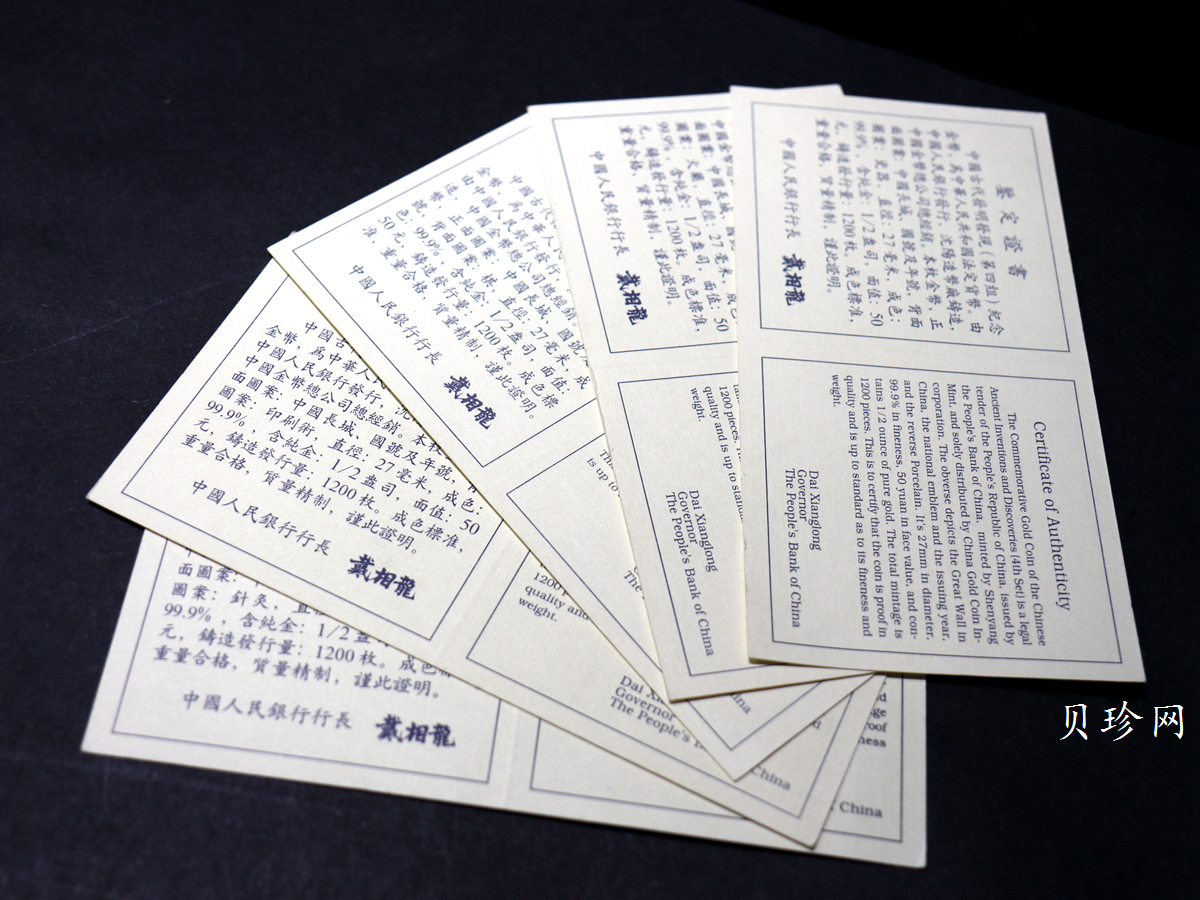 鑒定證書
中國古代發明發現(第四組)紀念
金幣,爲中華人民共和國法定貨幣。由
中國人民銀行發行,沈陽造幣廠鑄造,
中國金幣總公司總經銷。本枚金幣,正
面圖案:中國長城、國號及年號,背面
圖案:瓷器,直徑:27毫米,成色:
99.9%,含純金:1/2盎司,面值:50
元,鑄造發行量:1200枚。成色標準,
重量合格,質量精制,謹此證明。
中國人民銀行行長 戴相龍
Certificate of Authenticity
The Commemorative Gold Coin of the Chinese
Ancient Inventions and Discoveries (4th Set) is a legal
tender of the People's Republic of China, issued by
the People's Bank of China, minted by Shenyang
Mint, and solely distributed by China Gold Coin In-
corporation. The obverse depicts the Great Wall in
China, the national emblem and the issuing year,
and the reverse Porcelain. It's 27mm in diameter,
99.9% in fineness, 50 yuan in face value, and con-
tains 1/2 ounce of pure gold. The total mintage is
1200 pieces. This is to certify that the coin is proof in
quality and is up to standard as to its fineness and
weight.
Dai Xianglong
Governor
The People's Bank of China
面圖案:中國長城、國號
圖案:大廠,直徑:27毫米,成
99.9%,含純金:1/2盎司,面值:50
元,鑄造發行量:1200枚。成色標準,
重量合格,質量精制,謹此證明。
中國人民銀行行長 戴相龍
1200 pieces.
quality and is up to stand
weight.
Dai Xianglong
Governor
The People's Bank of China
中國古代
金幣,爲中華人
由中國人民銀行發行
造,中國金幣總公司總經銷
正面圖案:中國長城、國號
背面圖案:
色:99.9%,含純金:1/2盎司,面值:
50元,鑄造發行量:1200枚。成色標
準,重量合格,質量精制,謹此證明。
中國人民銀行行長 戴相龍
is up to
中國古
金幣,爲中華人民
中國人民銀行發行,沈
中國金幣總公司總經銷。本枚
面圖案:中國長城、國號及年號,背
圖案:印刷術,直徑:27毫米,成色:
99.9%,含純金:1/2盎司,面值:50
元,鑄造發行量:1200枚。成色標準,
重量合格,質量精制,謹此證明。
中國人民銀行行長 戴相龍
1200 p
quality and
weight.
Dai X
Governor
The People's B
China
面圖案:
圖案:針灸,直
99.9%,含純金:1/2盎
元,鑄造發行量:1200枚。成色
重量合格,質量精制,謹此證明。
中國人民銀行行長 戴相龍
China
贝珍网